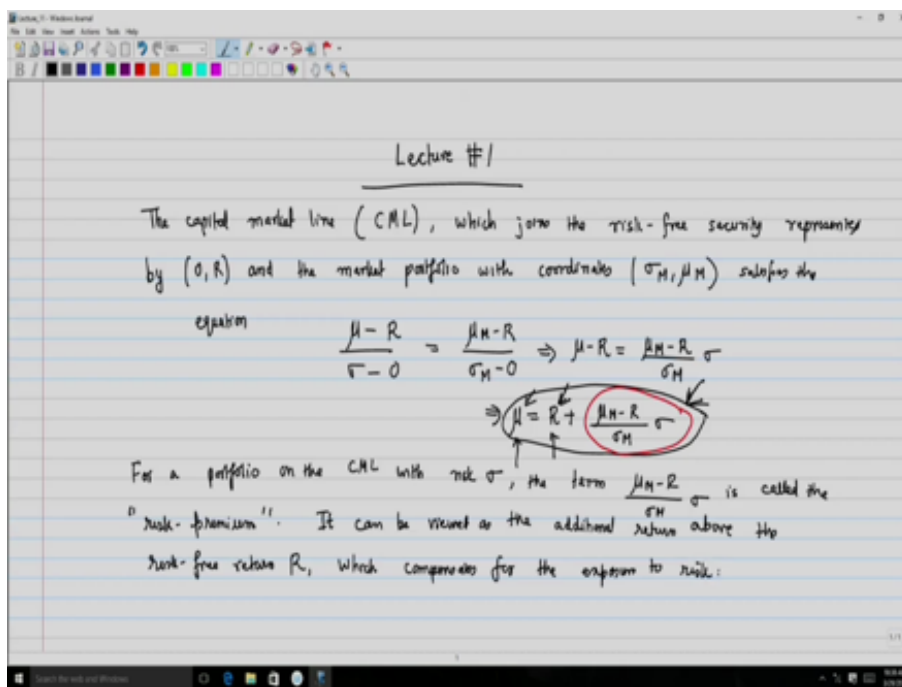 Lecture_11 - Windows Journal
File Edit View Insert Actions Tools Help
B I
Lecture #1
The capital market line (CML), which joins the risk-free security represented
by (0, R) and the market portfolio with coordinates (σM, μM) satisfies the
equation
μ - R / σ - 0 = μM - R / σM - 0 ⇒ μ - R = μM - R / σM σ
⇒ μ = R + μM - R / σM σ
For a portfolio on the CML with risk σ, the term μM - R / σM σ is called the
"risk-premium". It can be viewed as the additional return above the
risk-free return R, which compensates for the exposure to risk.
1/1
Search the web and Windows